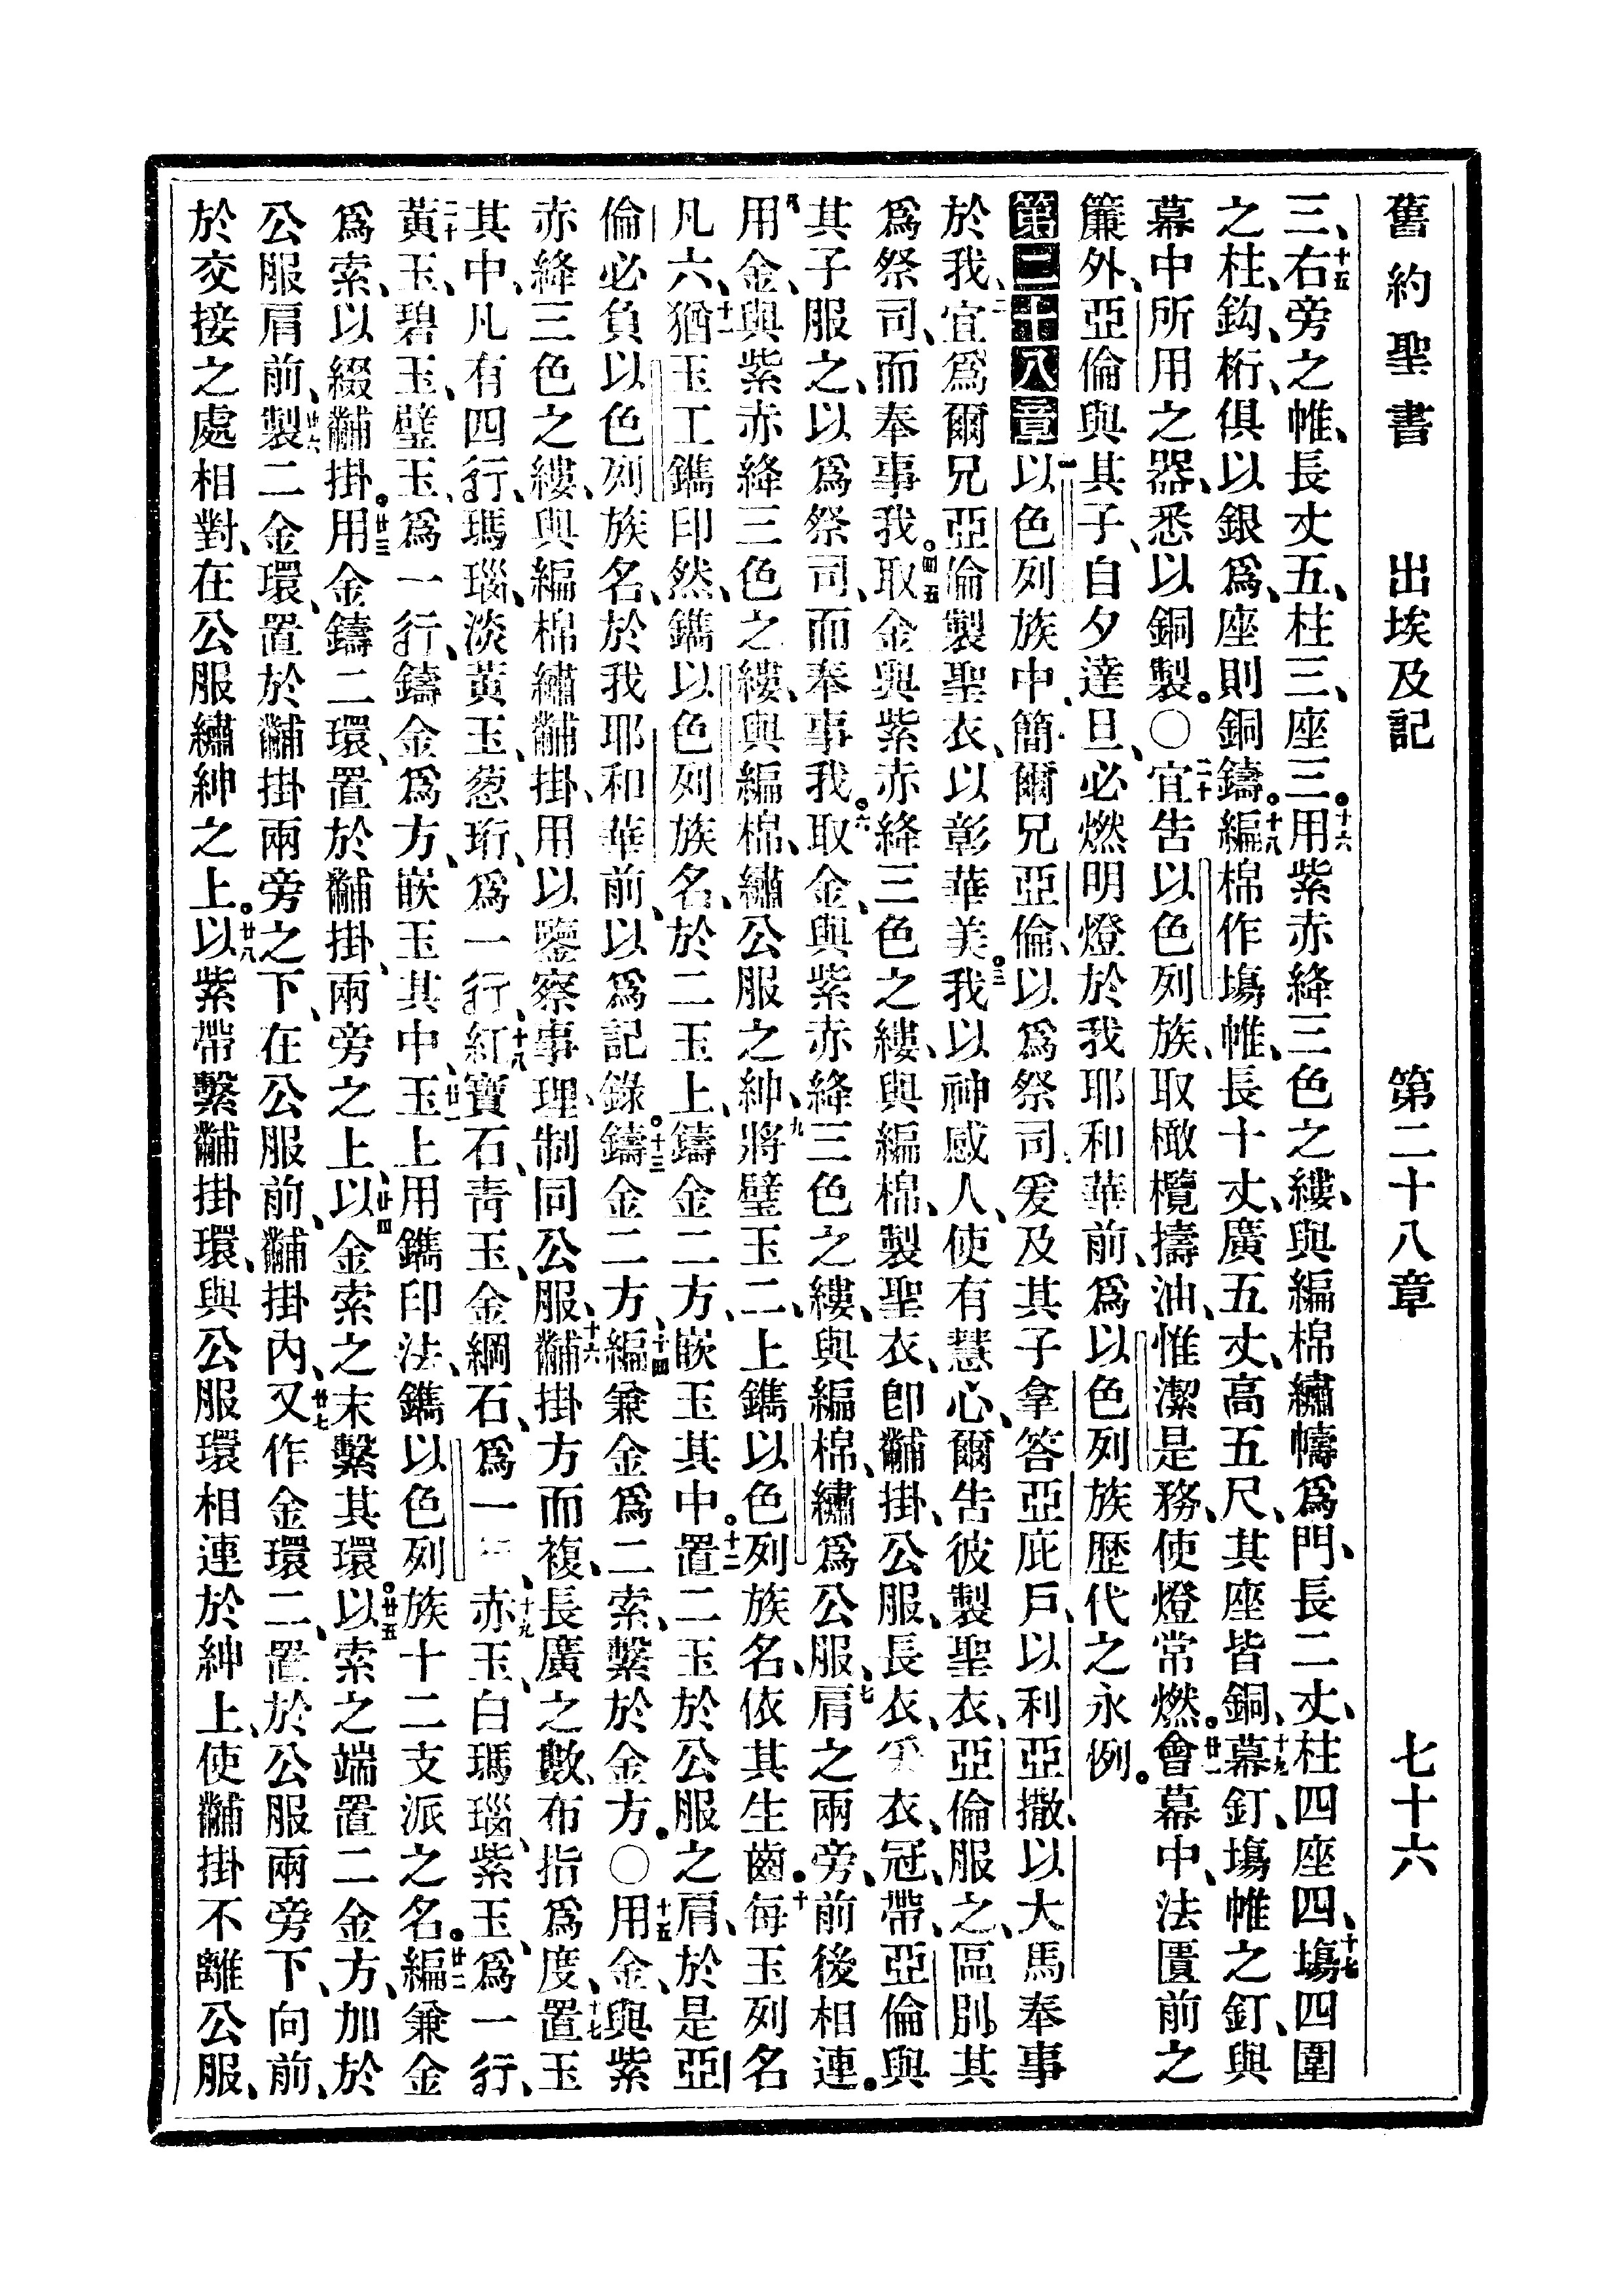 舊約聖書 出埃及記 第二十八章 七十六
三、十五右旁之帷、長丈五、柱三、座三。十六用紫赤絳三色之縷、與編棉繡幬爲門、長二丈、柱四座四、十七塲四圍
之柱、鈎、桁、俱以銀爲、座則銅鑄。十八編棉作塲帷、長十丈、廣五丈、高五尺、其座皆銅、十九幕釘、塲帷之釘、與
幕中所用之器、悉以銅製。〇二十宜告以色列族、取橄欖擣油、惟潔是務、使燈常燃。廿一會幕中、法匱前之
簾外、亞倫與其子、自夕達旦、必燃明燈於我耶和華前、爲以色列族歷代之永例。
第二十八章 一以色列族中、簡爾兄亞倫、以爲祭司、爰及其子拿答亞庇戶、以利亞撒、以大馬奉事
於我、二宜爲爾兄亞倫製聖衣、以彰華美。三我以神感人、使有慧心、爾告彼製聖衣、亞倫服之、區別其
爲祭司、而奉事我。四五取金與紫赤絳三色之縷、與編棉、製聖衣、卽黼掛、公服、長衣、裻衣、冠、帶、亞倫與
其子服之、以爲祭司、而奉事我。六取金、與紫赤絳三色之縷、與編棉、繡爲公服、七肩之兩旁、前後相連。
八用金、與紫赤絳三色之縷、與編棉、繡公服之紳、九將璧玉二、上鐫以色列族名、依其生齒。十每玉列名
凡六、十一猶玉工鐫印然、鐫以色列族名、於二玉上、鑄金二方、嵌玉其中。十二置二玉於公服之肩、於是亞
倫必負以色列族名、於我耶和華前、以爲記錄。十三鑄金二方、十四編兼金爲二索、繫於金方。〇十五用金、與紫
赤絳三色之縷、與編棉繡黼掛、用以鑒察事理、制同公服、十六黼掛方而複、長廣之數、布指爲度、十七置玉
其中、凡有四行、瑪瑙、淡黃玉、葱珩、爲一行、十八紅寶石、青玉、金綱石、爲一行、十九赤玉、白瑪瑙、紫玉、爲一行、
二十黃玉、碧玉、璧玉、爲一行、鑄金爲方、嵌玉其中、廿一玉上用鐫印法、鐫以色列族十二支派之名。廿二編兼金
爲索、以綴黼掛。廿三用金鑄二環、置於黼掛、兩旁之上、廿四以金索之末繫其環。廿五以索之端置二金方、加於
公服肩前、廿六製二金環、置於黼掛兩旁之下、在公服前、黼掛內、廿七又作金環二、置於公服兩旁下、向前、
於交接之處相對、在公服繡紳之上。廿八以紫帶繫黼掛環、與公服環相連於紳上、使黼掛不離公服、